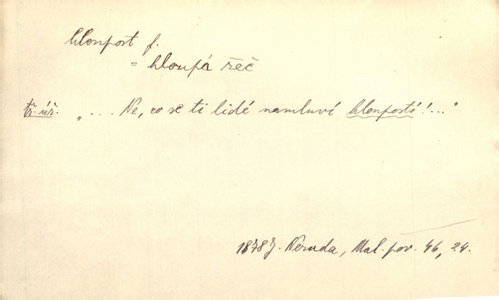 hloupost f.
= hloupá řeč
tř. úř. „ .... Ne, co se ti lidé namluví hloupostí!..."
1878 J. Neruda, Mal. pov. 46, 24.